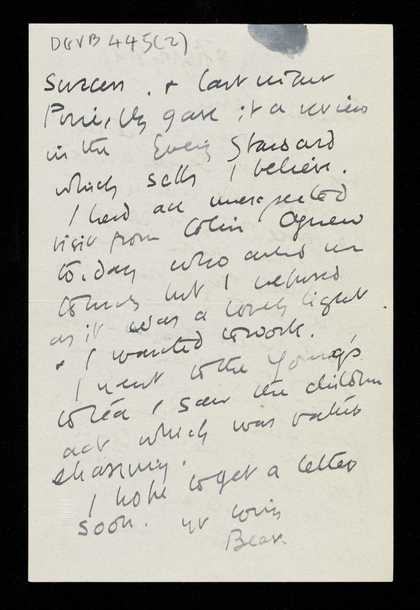 DGVB 445(2)
success. + last night
gave it a review
in the Eveng Standard
which sells I believe.
I had an unexpected
visit from Colin Agnew
to.day who asked me
to lunch but I refused
as it was a lovely light
+ I wanted to work.
I went to the Young's
to tea I saw the children
act which was rather
charming.
I hope to get a letter
soon. yr loving
Bear.